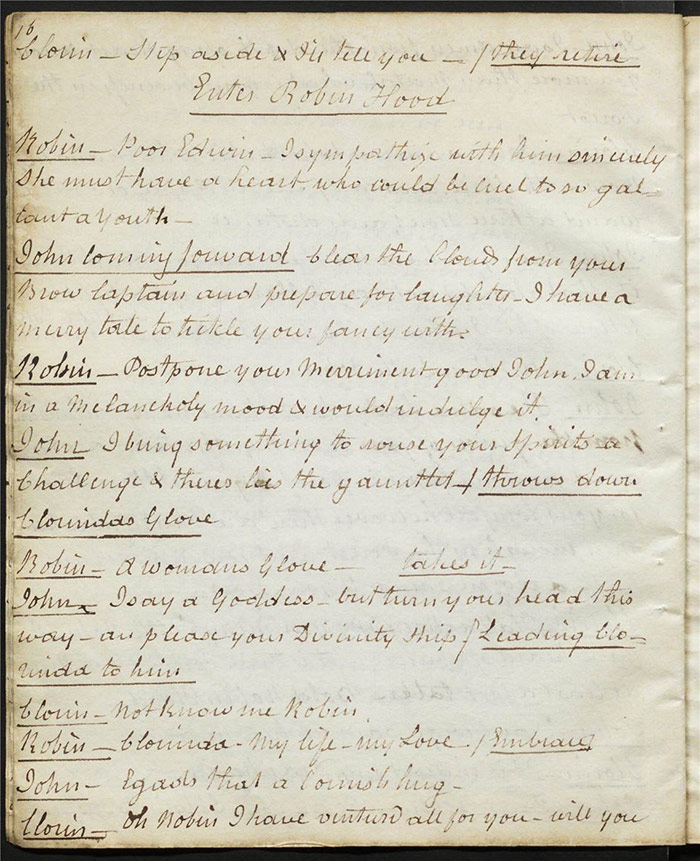 16
Clorin – Step aside & I'll tell you – / they retire
Enter Robin Hood
Robin – Poor Edwin – I sympathize with him sincerely
She must have a heart who could be cruel to so gal-
lant a youth –
John coming forward Clear the Clouds from your
Brow Captain and prepare for laughter – I have a
merry tale to tickle your fancy with.
Robin – Postpone your Merriment good John. I am
in a Melancholy mood & would indulge it.
John I bring something to rouse your Spirits a
Challenge & theres lies the gauntlet / throws down
Clorindas Glove
Robin – A womans Glove – takes it –
John I say a Goddess – but turn your head this
way – an please your Divinity ship / Leading Clo-
rinda to him
Clorin – Not know me Robin
Robin – Clorinda – My life – my Love / Embrace
John – Egads that a Cornish hug –
Clorin – Oh Robin I have ventur'd all for you – will you